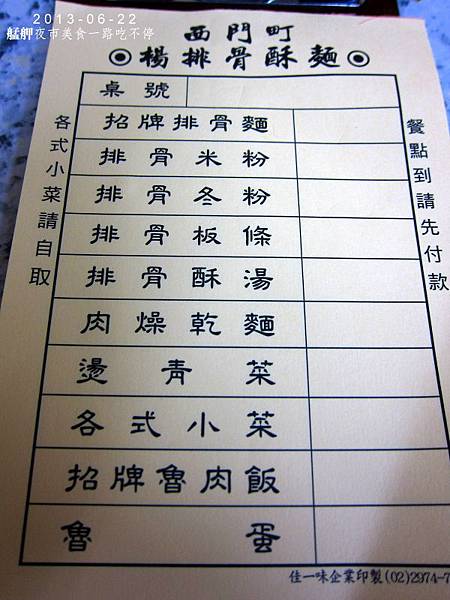 2013-06-22
艋舺夜市美食一路吃不停
西門町
楊排骨酥麵
桌號
招牌排骨麵
排骨米粉
排骨冬粉
排骨板條
排骨酥湯
肉燥乾麵
燙青菜
各式小菜
招牌魯肉飯
魯蛋
各式小菜請自取
餐點到請先付款
佳一味企業印製(02)2974-7